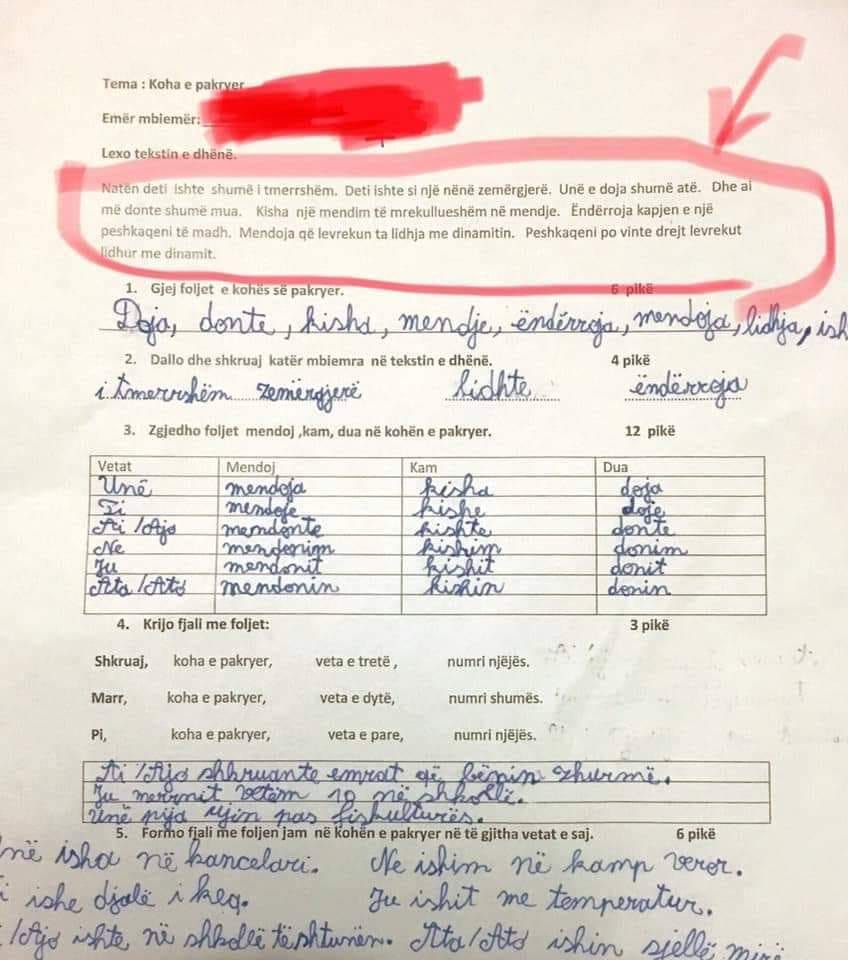 Tema : Koha e pakryer
Emër mbiemër:
Lexo tekstin e dhënë.
Natën deti ishte shumë i tmerrshëm. Deti ishte si një nënë zemërgjerë. Unë e doja shumë atë. Dhe ai
më donte shumë mua. Kisha një mendim të mrekullueshëm në mendje. Ëndërroja kapjen e një
peshkaqeni të madh. Mendoja që levrekun ta lidhja me dinamitin. Peshkaqeni po vinte drejt levrekut
lidhur me dinamit.
1. Gjej foljet e kohës së pakryer. 6 pikë
Doja, donte, kisha, mendje, ëndërroja, mendoja, lidhja, ish
2. Dallo dhe shkruaj katër mbiemra në tekstin e dhënë. 4 pikë
i tmerrshëm zemërgjerë lidhte ëndërroja
3. Zgjedho foljet mendoj ,kam, dua në kohën e pakryer. 12 pikë
Vetat Mendoj Kam Dua
Unë mendoja kisha doja
Ti mendoje kishe doje
Ai /Ajo mendonte kishte donte
Ne mendonim kishim donim
Ju mendonit kishit donit
Ata /Ato mendonin kishin donin
4. Krijo fjali me foljet: 3 pikë
Shkruaj, koha e pakryer, veta e tretë , numri njëjës.
Marr, koha e pakryer, veta e dytë, numri shumës.
Pi, koha e pakryer, veta e pare, numri njëjës.
Ai /Ajo shkruante emrat që bënin zhurmë.
Ju merrnit vetëm 10 në shkollë.
Unë pija ujin pas fiskulturës.
5. Formo fjali me foljen jam në kohën e pakryer në të gjitha vetat e saj. 6 pikë
në isha në kancelari. Ne ishim në kamp veror.
i ishe djalë i keq. Ju ishit me temperatur.
/Ajo ishte në shkollë të shtunën. Ata/Ato ishin sjellë mirë